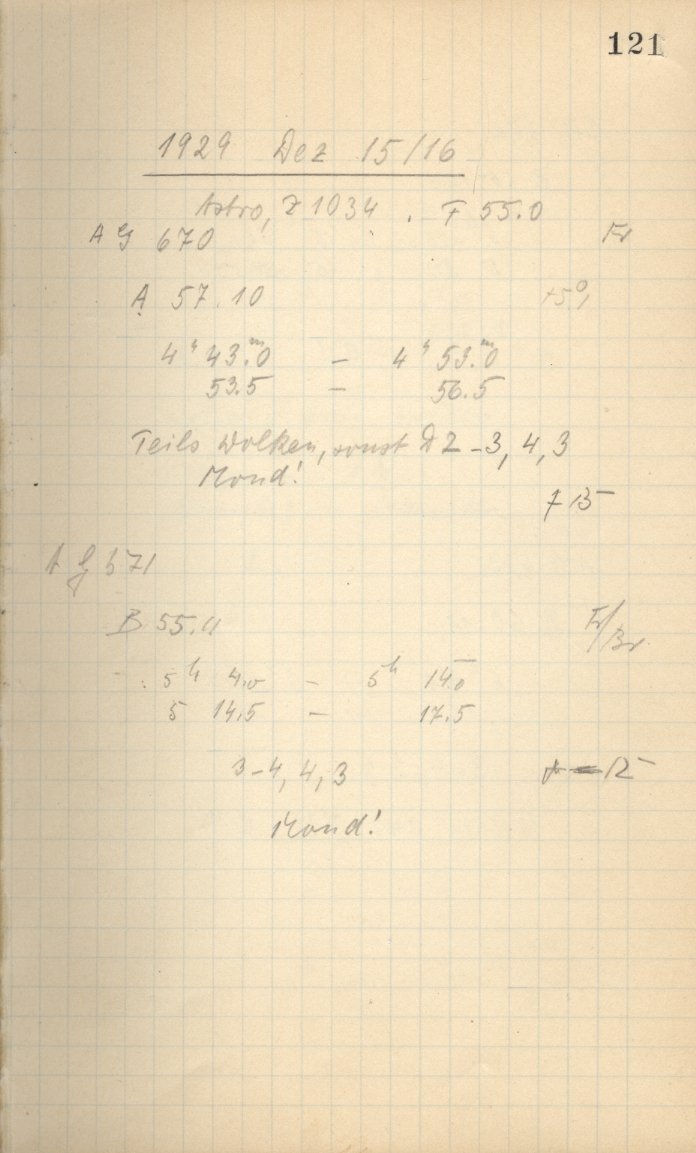 121
1929 Dez 15/16
Astro, Z 1034 . F 55.0
AG 670 Fr
A 57.10 +5°,
4ʰ 43.ᵐ0 – 4ʰ 53.ᵐ0
53.5 – 56.5
Teils Wolken, sonst D 2–3, 4, 3
Mond!
+ 15
AG 671
B 55.11 Fr/Br
5ʰ 4.0 – 5ʰ 14.0
5 14.5 – 17.5
3–4, 4, 3 15
Mond!